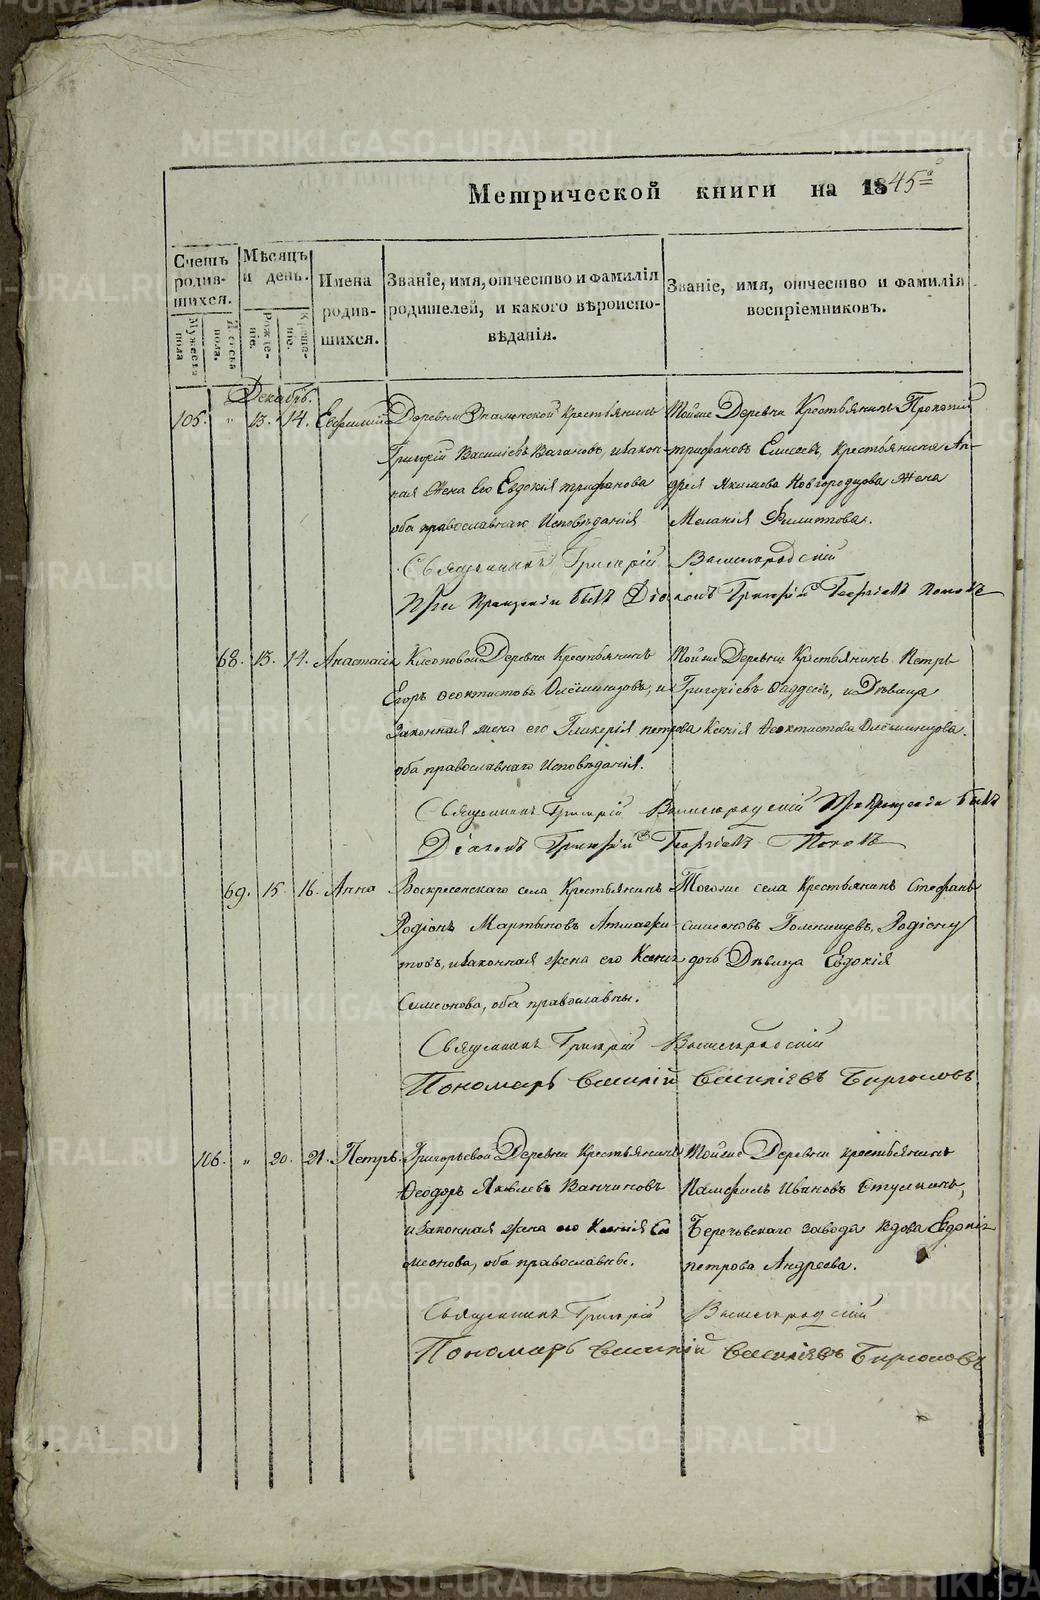 Метрической книги на 1845а
Счетъ родив-шихся.
Мѣсяцъ и день.
Имена родив-шихся.
Званіе, имя, отчество и фамилія родителей, и какого вѣроиспо-вѣданія.
Званіе, имя, отчество и фамилія воспріемниковъ.
Мужеска пола
Женска пола.
Рожде-ніе.
Креще-ніе.
Декабрь.
105. " 13. 14. Евфимій
Деревни Знаменской Крестьянинъ
Григорій Василіевъ Вагановъ, и закон-
ная Жена Его Евдокія трифанова
оба православнаго Исповѣданія
Тойже Деревни Крестьянинъ Прокопій
трифановъ Елисеевъ, Крестьянина Ан-
дрея Якимова Новгородцова Жена
Меланія Филиппова.
Священникъ Григорій Вышегродскій
При Крещеніи былъ Діаконъ Григорій Георгіевъ Поповъ
68. 13. 14. Анастасія
Клеоповой Деревни Крестьянинъ
Егоръ Феоктистовъ, и
Законная жена его Гликерія петрова
оба православнаго Исповѣданія.
Тойже Деревни Крестьянинъ Петръ
Григоріевъ Фаддеевъ, и Дѣвица
Ксенія Феоктистова
Священникъ Григорій Вышегродскій При Крещеніи былъ
Діаконъ Григорій Георгіевъ Поповъ
69. 15. 16. Анна
Воскресенскаго села Крестьянинъ
Родіонъ Мартыновъ
и законная жена его Ксенія
Симеонова, оба православны.
Тогоже села Крестьянинъ Стефанъ
Симеоновъ Голенищевъ, Родіону
дочь Дѣвица Евдокія
Священникъ Григорій Вышегродскій
Пономарь Василій Василіевъ Бирюковъ
106. " 20. 21. Петръ.
Григорьевой Деревни Крестьянинъ
Феодоръ Яковлевъ Ванчиновъ
и законная жена его Ксенія Си
меонова, оба православные.
Тойже Деревни крестьянинъ
Памфилъ Ивановъ
завода вдова Евдокія
петрова Андреева.
Священникъ Григорій Вышегродскій
Пономарь Василій Василіевъ Бирюковъ
METRIKI.GASO-URAL.RU